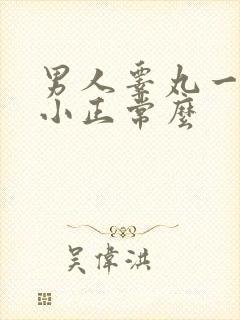 男人睾丸一
小正常麼
吴偉洪